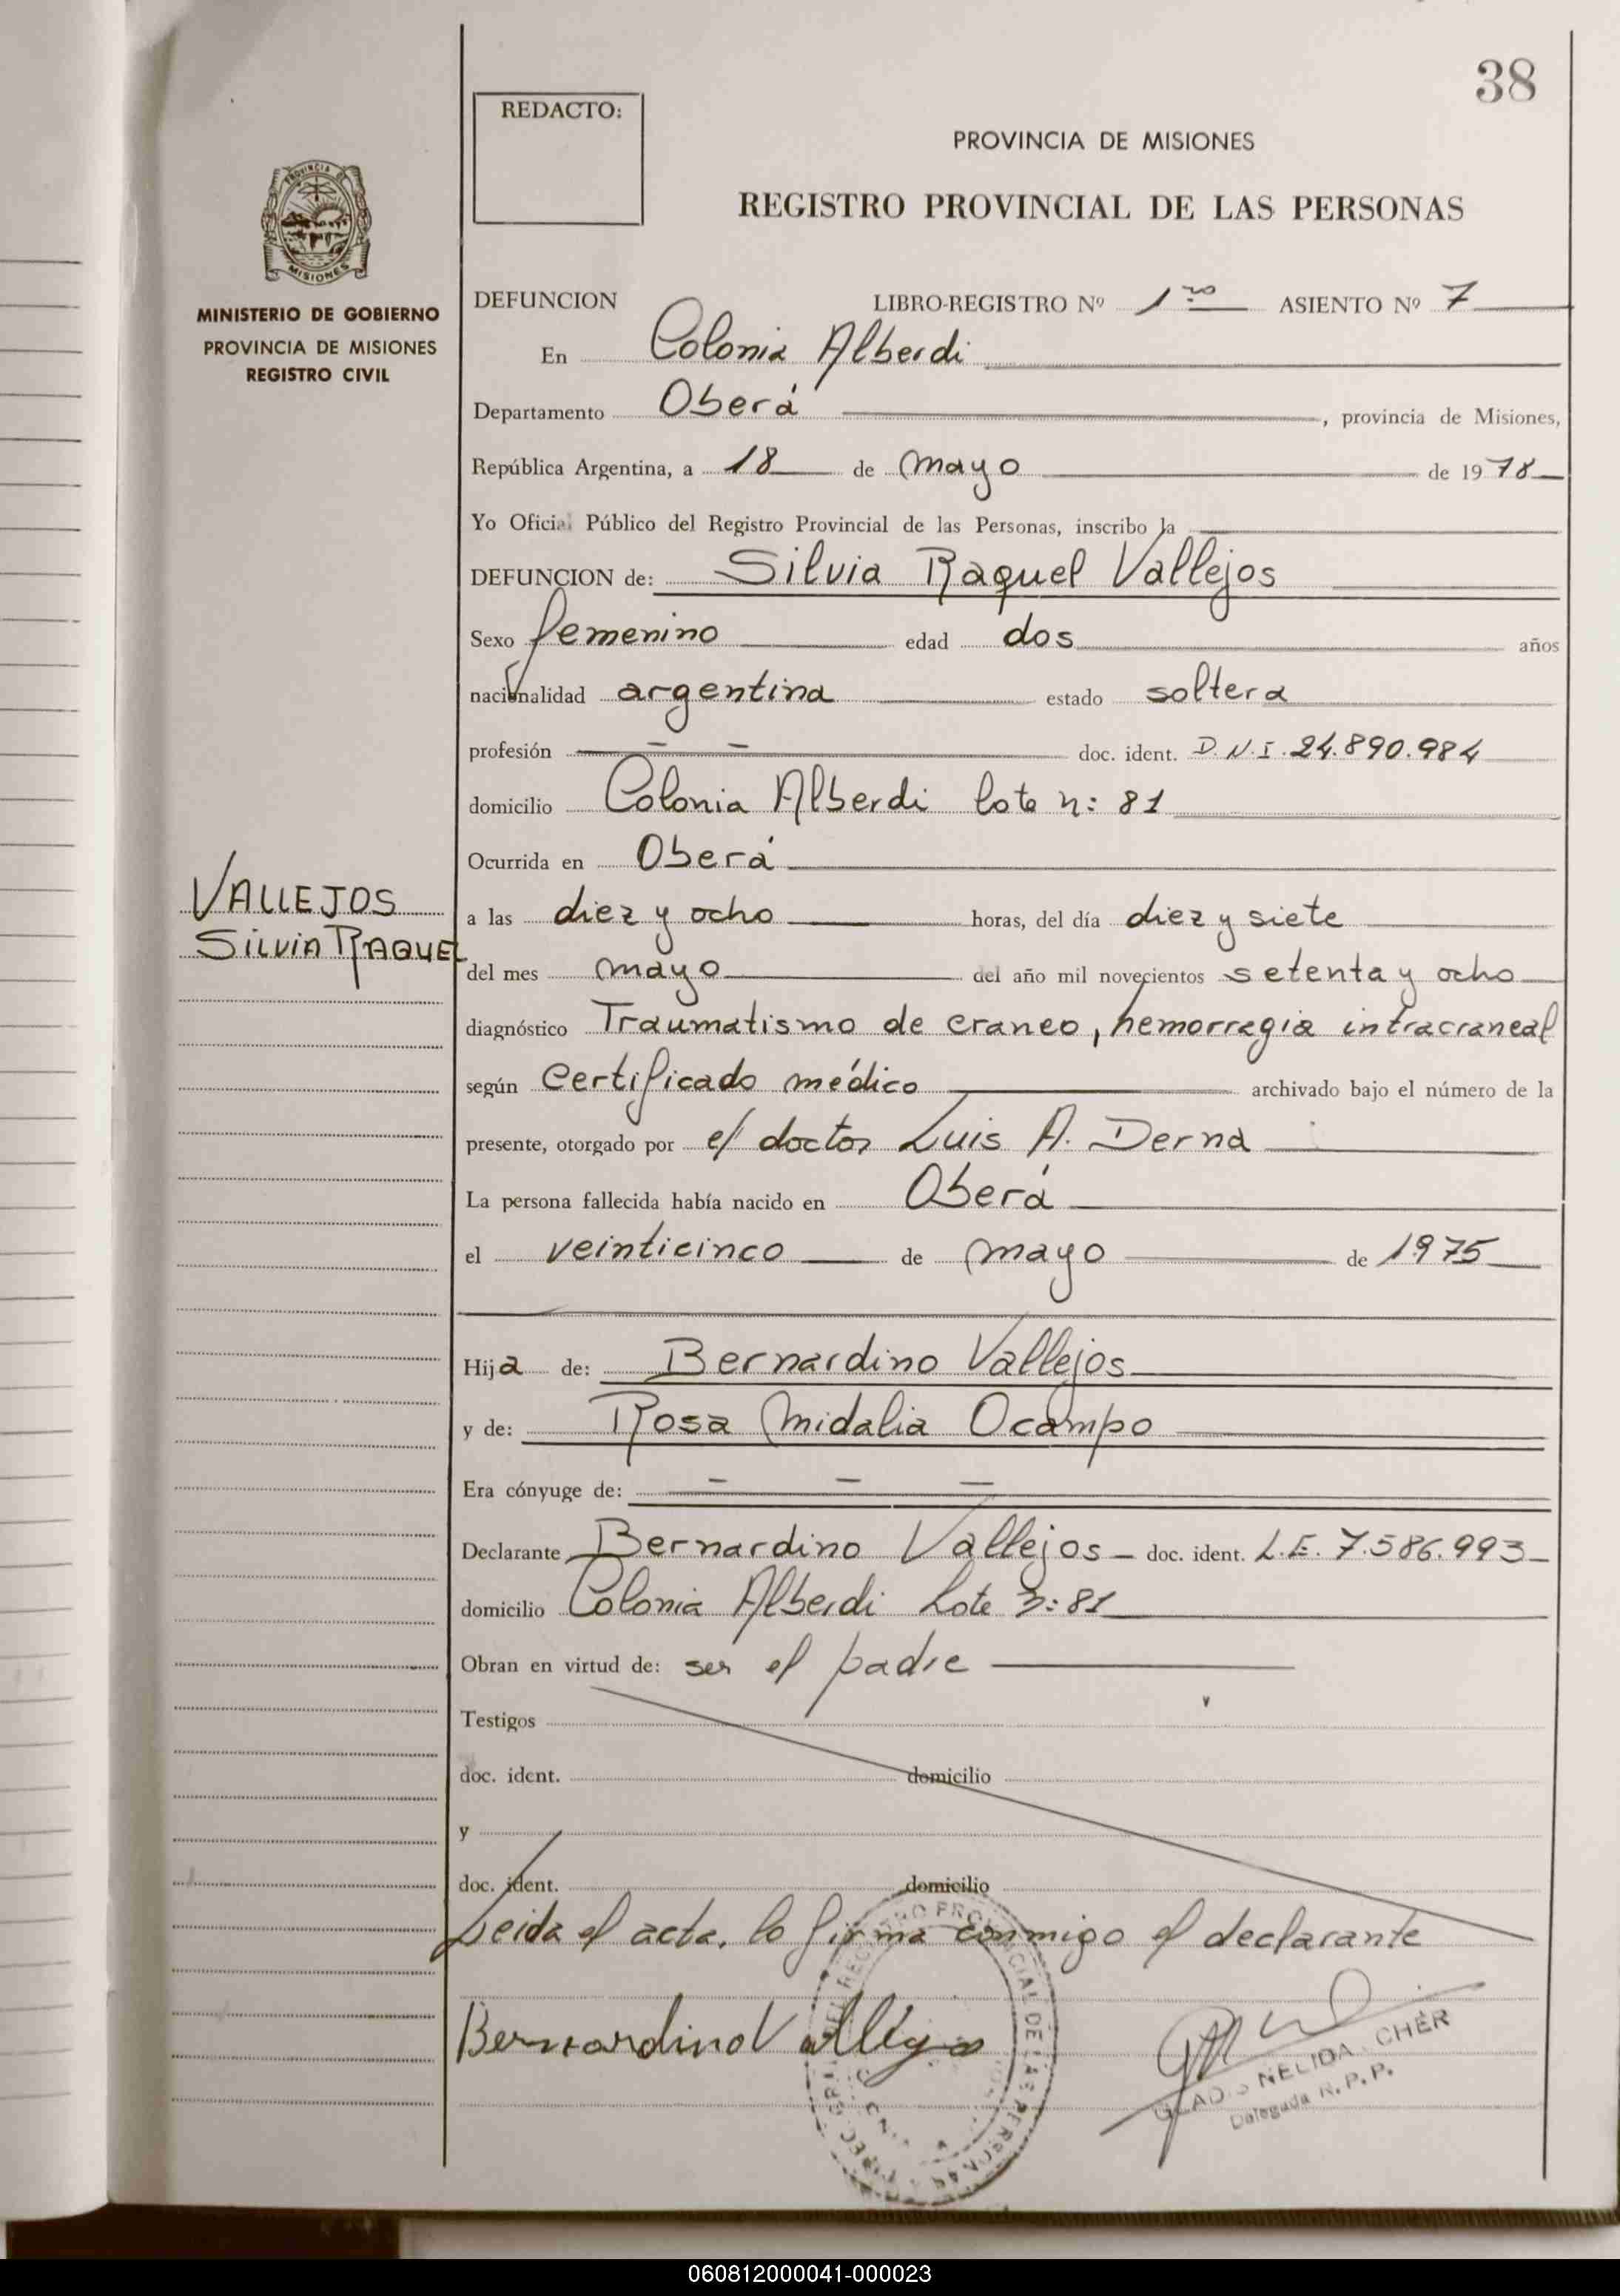 38
REDACTO:
PROVINCIA DE MISIONES
REGISTRO PROVINCIAL DE LAS PERSONAS
PROVINCIA DE
MISIONES
MINISTERIO DE GOBIERNO
PROVINCIA DE MISIONES
REGISTRO CIVIL
DEFUNCION LIBRO-REGISTRO Nº 1ro ASIENTO Nº 7
En Colonia Alberdi
Departamento Oberá, provincia de Misiones,
República Argentina, a 18 de mayo de 1978
Yo Oficial Público del Registro Provincial de las Personas, inscribo la
DEFUNCION de: Silvia Raquel Vallejos
Sexo femenino edad dos años
nacionalidad argentina estado soltera
profesión — — doc. ident. D.N.I. 24.890.984
domicilio Colonia Alberdi lote n: 81
Ocurrida en Oberá
VALLEJOS
SILVIA RAQUEL
a las diez y ocho horas, del día diez y siete
del mes mayo del año mil novecientos setenta y ocho
diagnóstico Traumatismo de craneo, hemorragia intracraneal
según certificado médico archivado bajo el número de la
presente, otorgado por el doctor Luis A. Derna
La persona fallecida había nacido en Oberá
el veinticinco de mayo de 1975
Hija de: Bernardino Vallejos
y de: Rosa Midalia Ocampo
Era cónyuge de: — — —
Declarante Bernardino Vallejos — doc. ident. L.E. 7.586.993
domicilio Colonia Alberdi Lote n: 81
Obran en virtud de: ser el padre
Testigos
doc. ident. domicilio
y
doc. ident. domicilio
Leida el acta, lo firma conmigo el declarante
Bernardino Vallejos
REGISTRO PROVINCIAL DE LAS PERSONAS
NELIDA
Delegada R.P.P.
060812000041-000023